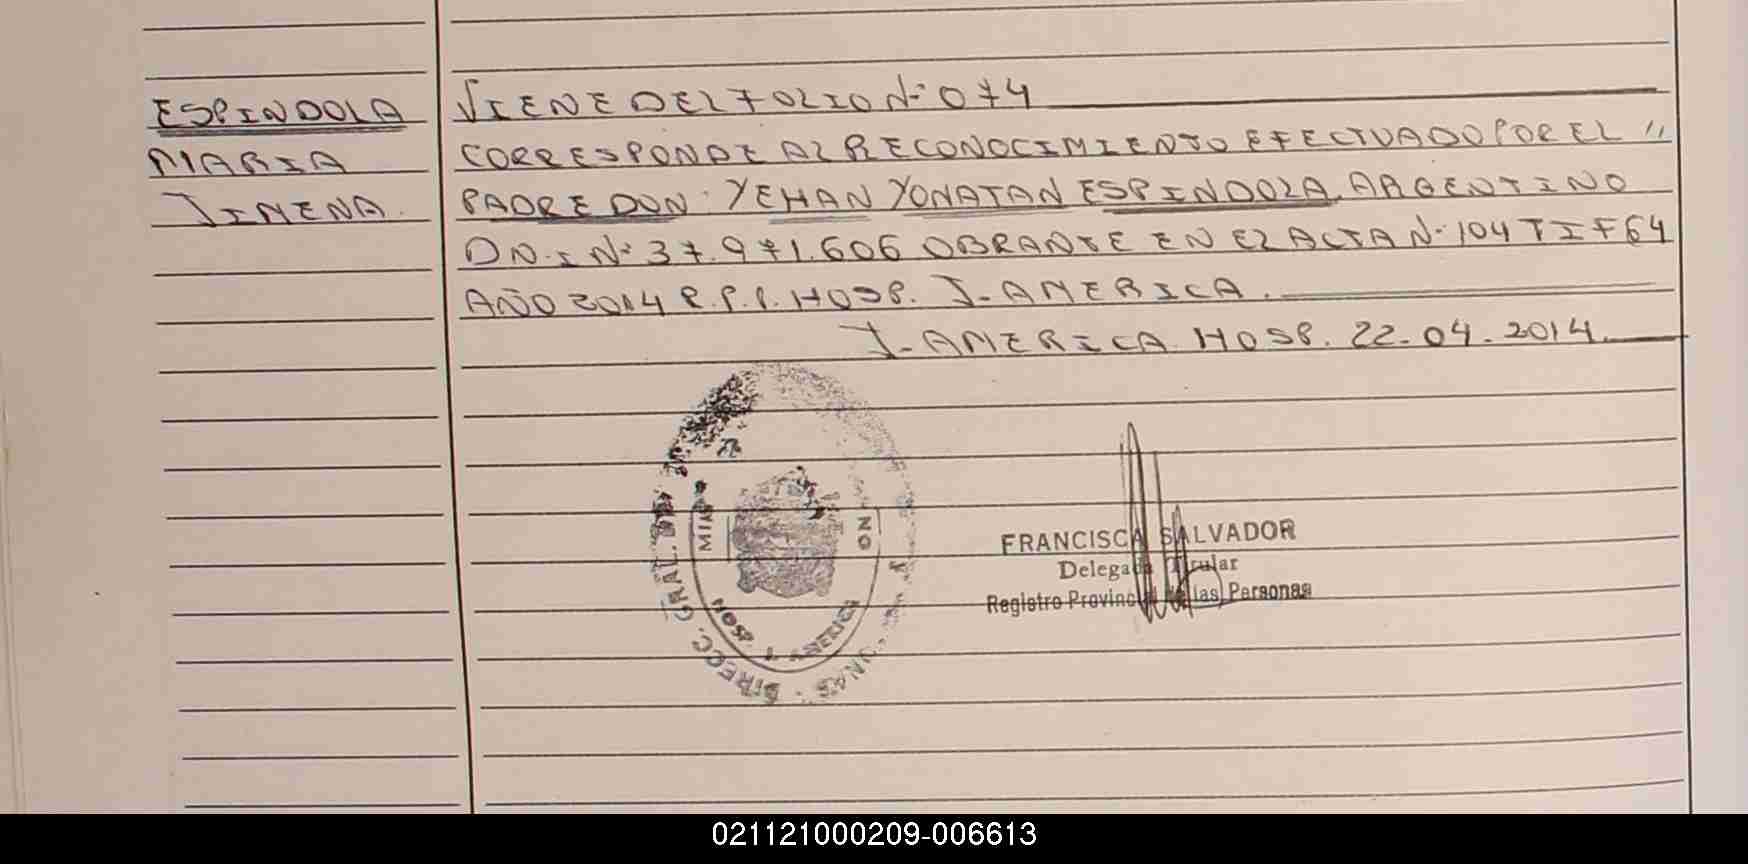 ESPINDOLA
MARIA
JIMENA.
VIENE DEL FOLIO Nº 074
CORRESPONDE AL RECONOCIMIENTO EFECTUADO POR EL "
PADRE DON: YEHAN YONATAN ESPINDOLA. ARGENTINO
D.N.I Nº 37.971.606 OBRANTE EN EL ACTA Nº 104 T I F 64
AÑO 2014 R.P.P. HOSP. J. AMERICA.
J. AMERICA HOSP. 22.04.2014.
DIRECC. GRAL.
HOSP. J. AMERICA
FRANCISCA SALVADOR
Delegada Titular
Registro Provincial de las Personas
021121000209-006613